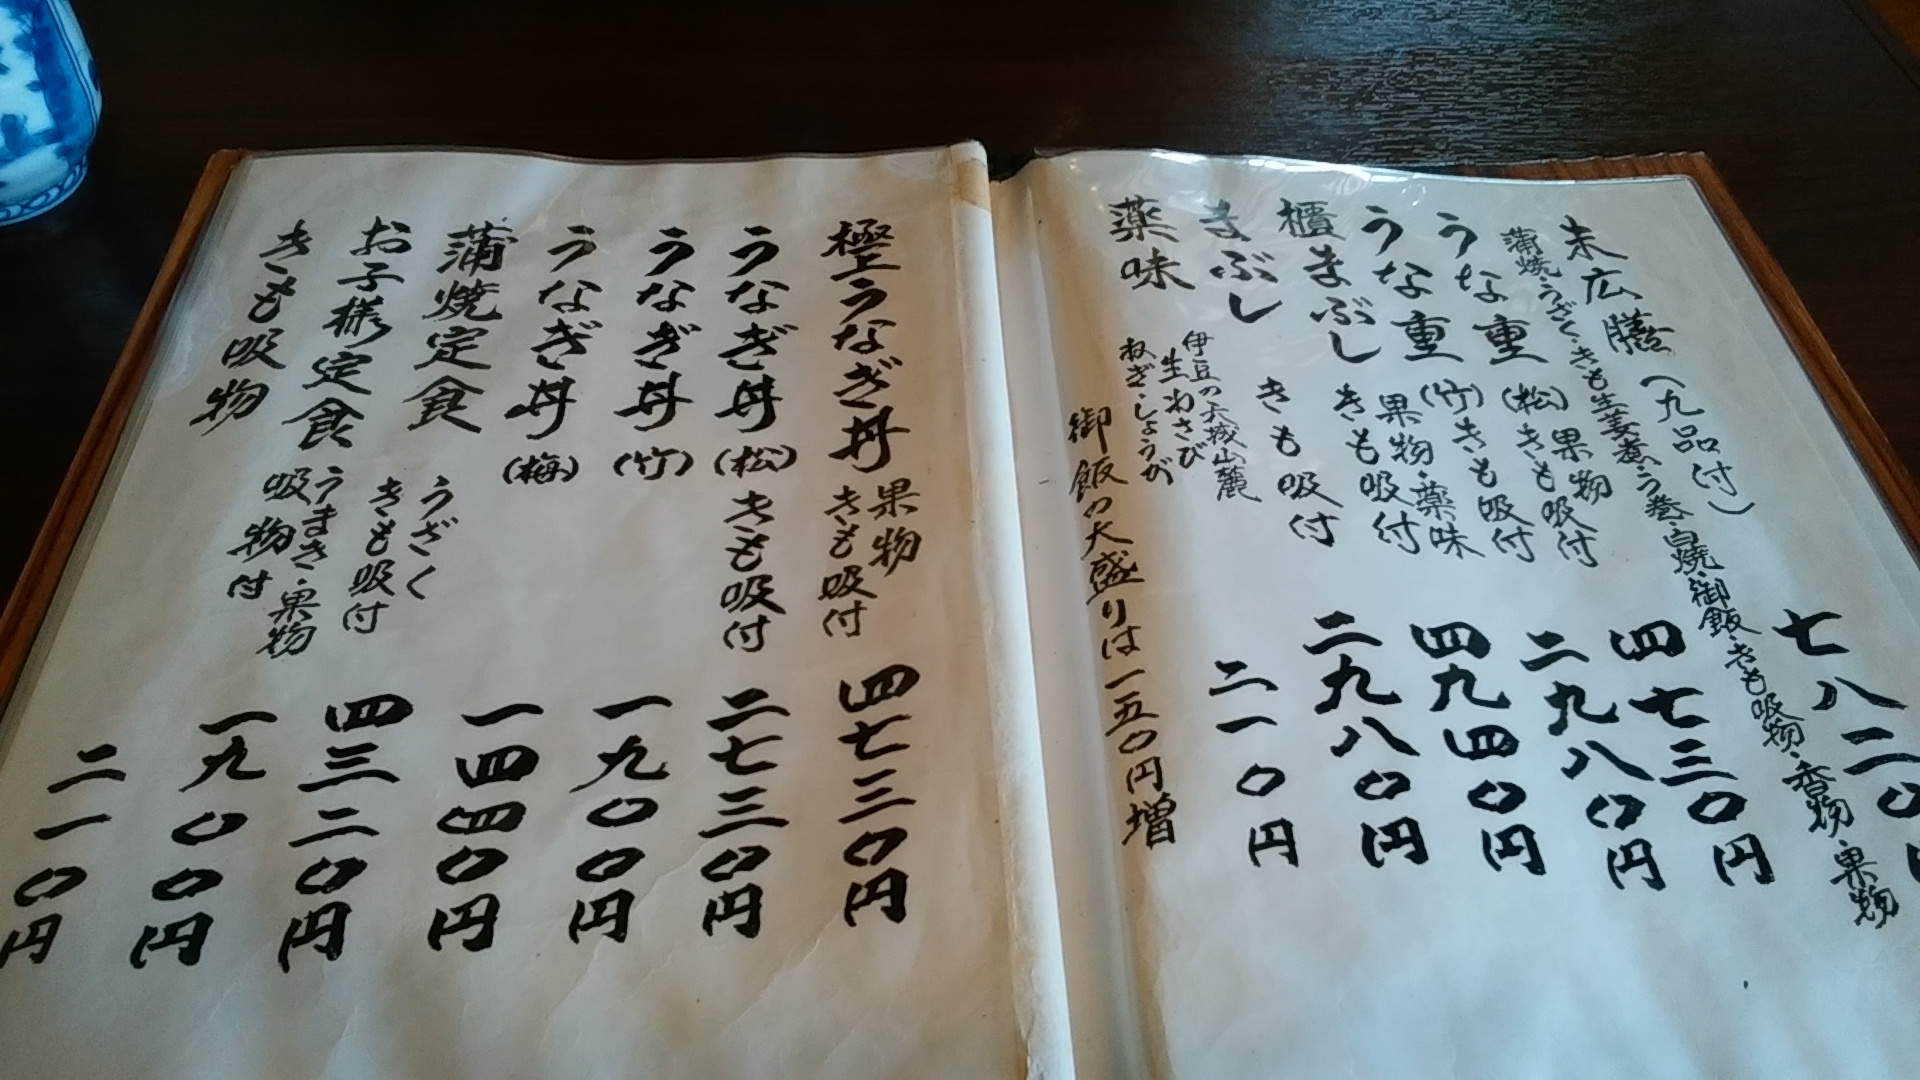 末広膳(九品付) 七八二〇
蒲焼・うざく・きも生姜煮・う巻・白焼・御飯・きも吸物・香物・果物
うな重(松)果物 きも吸付 四七三〇円
うな重(竹)きも吸付 二九八〇円
櫃まぶし 果物・薬味 きも吸付 四九四〇円
まぶし きも吸付 二九八〇円
薬味 伊豆の天城山麓 生わさび ねぎ・しょうが 二一〇円
御飯の大盛りは一五〇円増
極上うなぎ丼 果物 きも吸付 四七三〇円
うなぎ丼(松)きも吸付 二七三〇円
うなぎ丼(竹) 一九〇〇円
うなぎ丼(梅) 一四四〇円
蒲焼定食 うざく きも吸付 四三二〇円
お子様定食 うまき・果物 吸物付 一九〇〇円
きも吸物 二一〇円